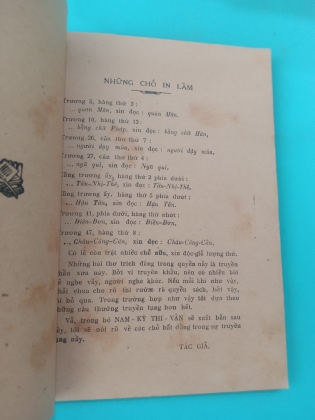 NHỮNG CHỖ IN LẦM
Trương 5, hàng thứ 3 :
... quan Mân, xin đọc : quân Mân.
Trương 10, hàng thứ 12 :
... bằng chữ Pháp, xin đọc : bằng chữ Hán,
Trương 26, câu thứ thứ 7 :
... người dạy mòn, xin đọc : người dậy mòn,
Trương 27, câu thứ tư :
... ngũ quỉ, xin đọc : Ngũ quỉ,
Cũng trương ấy, hàng thứ 2 phía dưới :
... Tôn-Nhị-Thế, xin đọc : Tần-Nhị-Thế,
Cũng trương ấy, hàng thứ 5 phía dưới :
... Hậu Tân, xin đọc : Hậu Yên.
Trương 41, phía dưới, hàng thứ nhứt :
... Biên-Đon, xin đọc : Biên-Đơn,
Trương 47, hàng thứ 8 :
... Châu-Công-Cẩn, xin đọc : Châu-Công-Cẩn,
Có lẽ còn trật nhiều chỗ nữa, xin độc-giả lượng thứ.
Những bài thơ trích đăng trong quyển nầy là truyền
khẩu xưa nay. Bởi vì truyền khẩu, nên có nhiều bài
kẻ nghe vầy, người nghe khác. Nếu mỗi khi như vậy,
phải chua cho rõ thì rườm rà quyển sách, bởi vậy,
tôi bỏ qua. Trong trường hợp như vậy tôi dựa theo
những câu thường truyền tụng hơn hết.
Vả, trong bộ NAM-KỲ THI-VĂN sẽ xuất bản sau
nầy, tôi sẽ nói rõ về các chỗ bất đồng trong sự truyền
tụng nầy.
TÁC GIẢ.